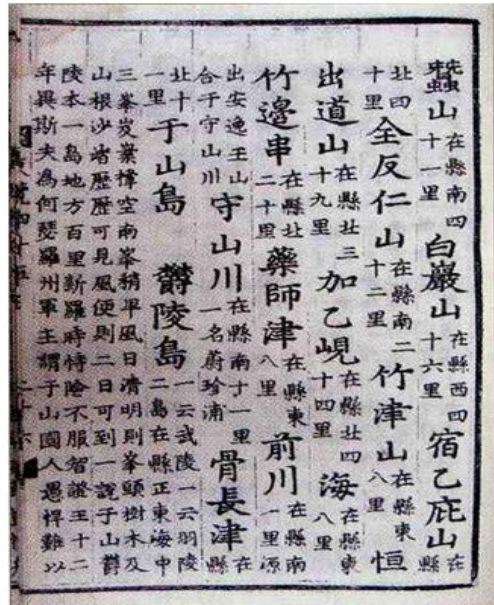 蠶山在縣南四十一里白巖山在縣西四十六里宿乙庇山在縣
北四十里全反仁山在縣南二十二里竹津山在縣東八里恒
出道山在縣北三十九里加乙峴在縣北四十四里海在縣東八里
竹邊串在縣北二十里藥師津在縣東八里前川在縣南一里源
出安逸王山合于守山川守山川在縣南十一里一名蔚珍浦骨長津在縣
北十一里于山島鬱陵島一云武陵一云羽陵二島在縣正東海中
三峯岌嶪撑空南峯稍卑風日清明則峯頭樹木及
山根沙渚歷歷可見風便則二日可到一說于山鬱
陵本一島地方百里新羅時恃險不服智證王十二
年異斯夫為何瑟羅州軍主謂于山國人愚悍難以